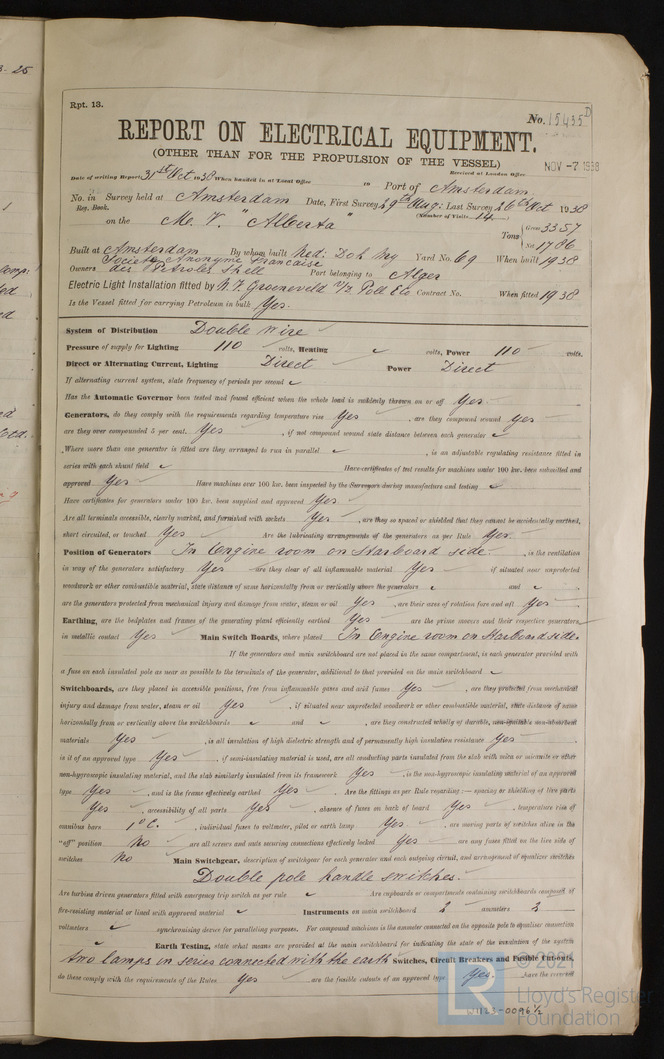 3-25
Rpt. 13.
No. 15435D
REPORT ON ELECTRICAL EQUIPMENT.
(OTHER THAN FOR THE PROPULSION OF THE VESSEL)
Received at London Office NOV -7 1938
Date of writing Report 31st Oct 1938 When handed in at Local Office 19 Port of Amsterdam
No. in Reg. Book. Survey held at Amsterdam Date, First Survey 29th Aug: Last Survey 26th Oct 1938
(Number of Visits 14)
on the M. V. "Alberta" Tons Gross 3357 Net 1786
Built at Amsterdam By whom built Ned: Dok My Yard No. 69 When built 1938
Owners Société Anonyme Francaise des Petroles Shell Port belonging to Alger
Electric Light Installation fitted by Groeneveld v/d Poll & Co Contract No. When fitted 1938
Is the Vessel fitted for carrying Petroleum in bulk Yes.
System of Distribution Double wire
Pressure of supply for Lighting 110 volts, Heating volts, Power 110 volts.
Direct or Alternating Current, Lighting Direct Power Direct
If alternating current system, state frequency of periods per second
Has the Automatic Governor been tested and found efficient when the whole load is suddenly thrown on or off Yes.
Generators, do they comply with the requirements regarding temperature rise Yes, are they compound wound Yes
are they over compounded 5 per cent. Yes, if not compound wound state distance between each generator
Where more than one generator is fitted are they arranged to run in parallel, is an adjustable regulating resistance fitted in
series with each shunt field Have certificates of test results for machines under 100 kw. been submitted and
approved Yes Have machines over 100 kw. been inspected by the Surveyors during manufacture and testing
Have certificates for generators under 100 kw. been supplied and approved Yes
Are all terminals accessible, clearly marked, and furnished with sockets Yes, are they so spaced or shielded that they cannot be accidentally earthed,
short circuited, or touched Yes Are the lubricating arrangements of the generators as per Rule Yes.
Position of Generators In Engine room on Starboard side., is the ventilation
in way of the generators satisfactory Yes are they clear of all inflammable material Yes if situated near unprotected
woodwork or other combustible material, state distance of same horizontally from or vertically above the generators and
are the generators protected from mechanical injury and damage from water, steam or oil Yes, are their axes of rotation fore and aft Yes
Earthing, are the bedplates and frames of the generating plant efficiently earthed Yes are the prime movers and their respective generators
in metallic contact Yes Main Switch Boards, where placed In Engine room on Starboard side
If the generators and main switchboard are not placed in the same compartment, is each generator provided with
a fuse on each insulated pole as near as possible to the terminals of the generator, additional to that provided on the main switchboard
Switchboards, are they placed in accessible positions, free from inflammable gases and acid fumes Yes, are they protected from mechanical
injury and damage from water, steam or oil Yes, if situated near unprotected woodwork or other combustible material, state distance of same
horizontally from or vertically above the switchboards and, are they constructed wholly of durable, non-ignitable non-absorbent
materials Yes, is all insulation of high dielectric strength and of permanently high insulation resistance Yes
is it of an approved type Yes, if semi-insulating material is used, are all conducting parts insulated from the slab with mica or micanite or other
non-hygroscopic insulating material, and the slab similarly insulated from its framework Yes, is the non-hygroscopic insulating material of an approved
type Yes, and is the frame effectively earthed Yes Are the fittings as per Rule regarding:— spacing or shielding of live parts
Yes, accessibility of all parts Yes, absence of fuses on back of board Yes, temperature rise of
omnibus bars 1°C., individual fuses to voltmeter, pilot or earth lamp Yes, are moving parts of switches alive in the
"off" position No are all screws and nuts securing connections effectively locked Yes are any fuses fitted on the live side of
switches No Main Switchgear, description of switchgear for each generator and each outgoing circuit, and arrangement of equalizer switches
Double pole handle switches.
Are turbine driven generators fitted with emergency trip switch as per rule Are cupboards or compartments containing switchboards composed of
fire-resisting material or lined with approved material Instruments on main switchboard 2 ammeters 2
voltmeters synchronising device for paralleling purposes. For compound machines is the ammeter connected on the opposite pole to equaliser connection
Earth Testing, state what means are provided at the main switchboard for indicating the state of the insulation of the system
two lamps in series connected with the earth Switches, Circuit Breakers and Fusible Cut-outs,
do these comply with the requirements of the Rules Yes, are the fusible cutouts of an approved type Yes., have the reserve
© 2021
Lloyd's Register
Foundation
LR
0096 1/2